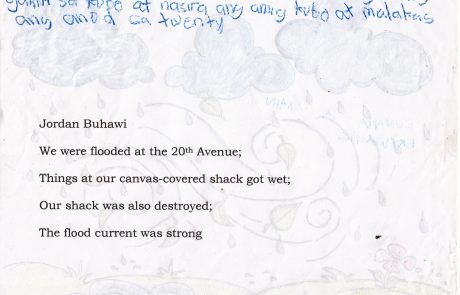 sa kubo at nasira ang aming kubo at malakas
ang anod sa twenty
Jordan Buhawi
We were flooded at the 20th Avenue;
Things at our canvas-covered shack got wet;
Our shack was also destroyed;
The flood current was strong